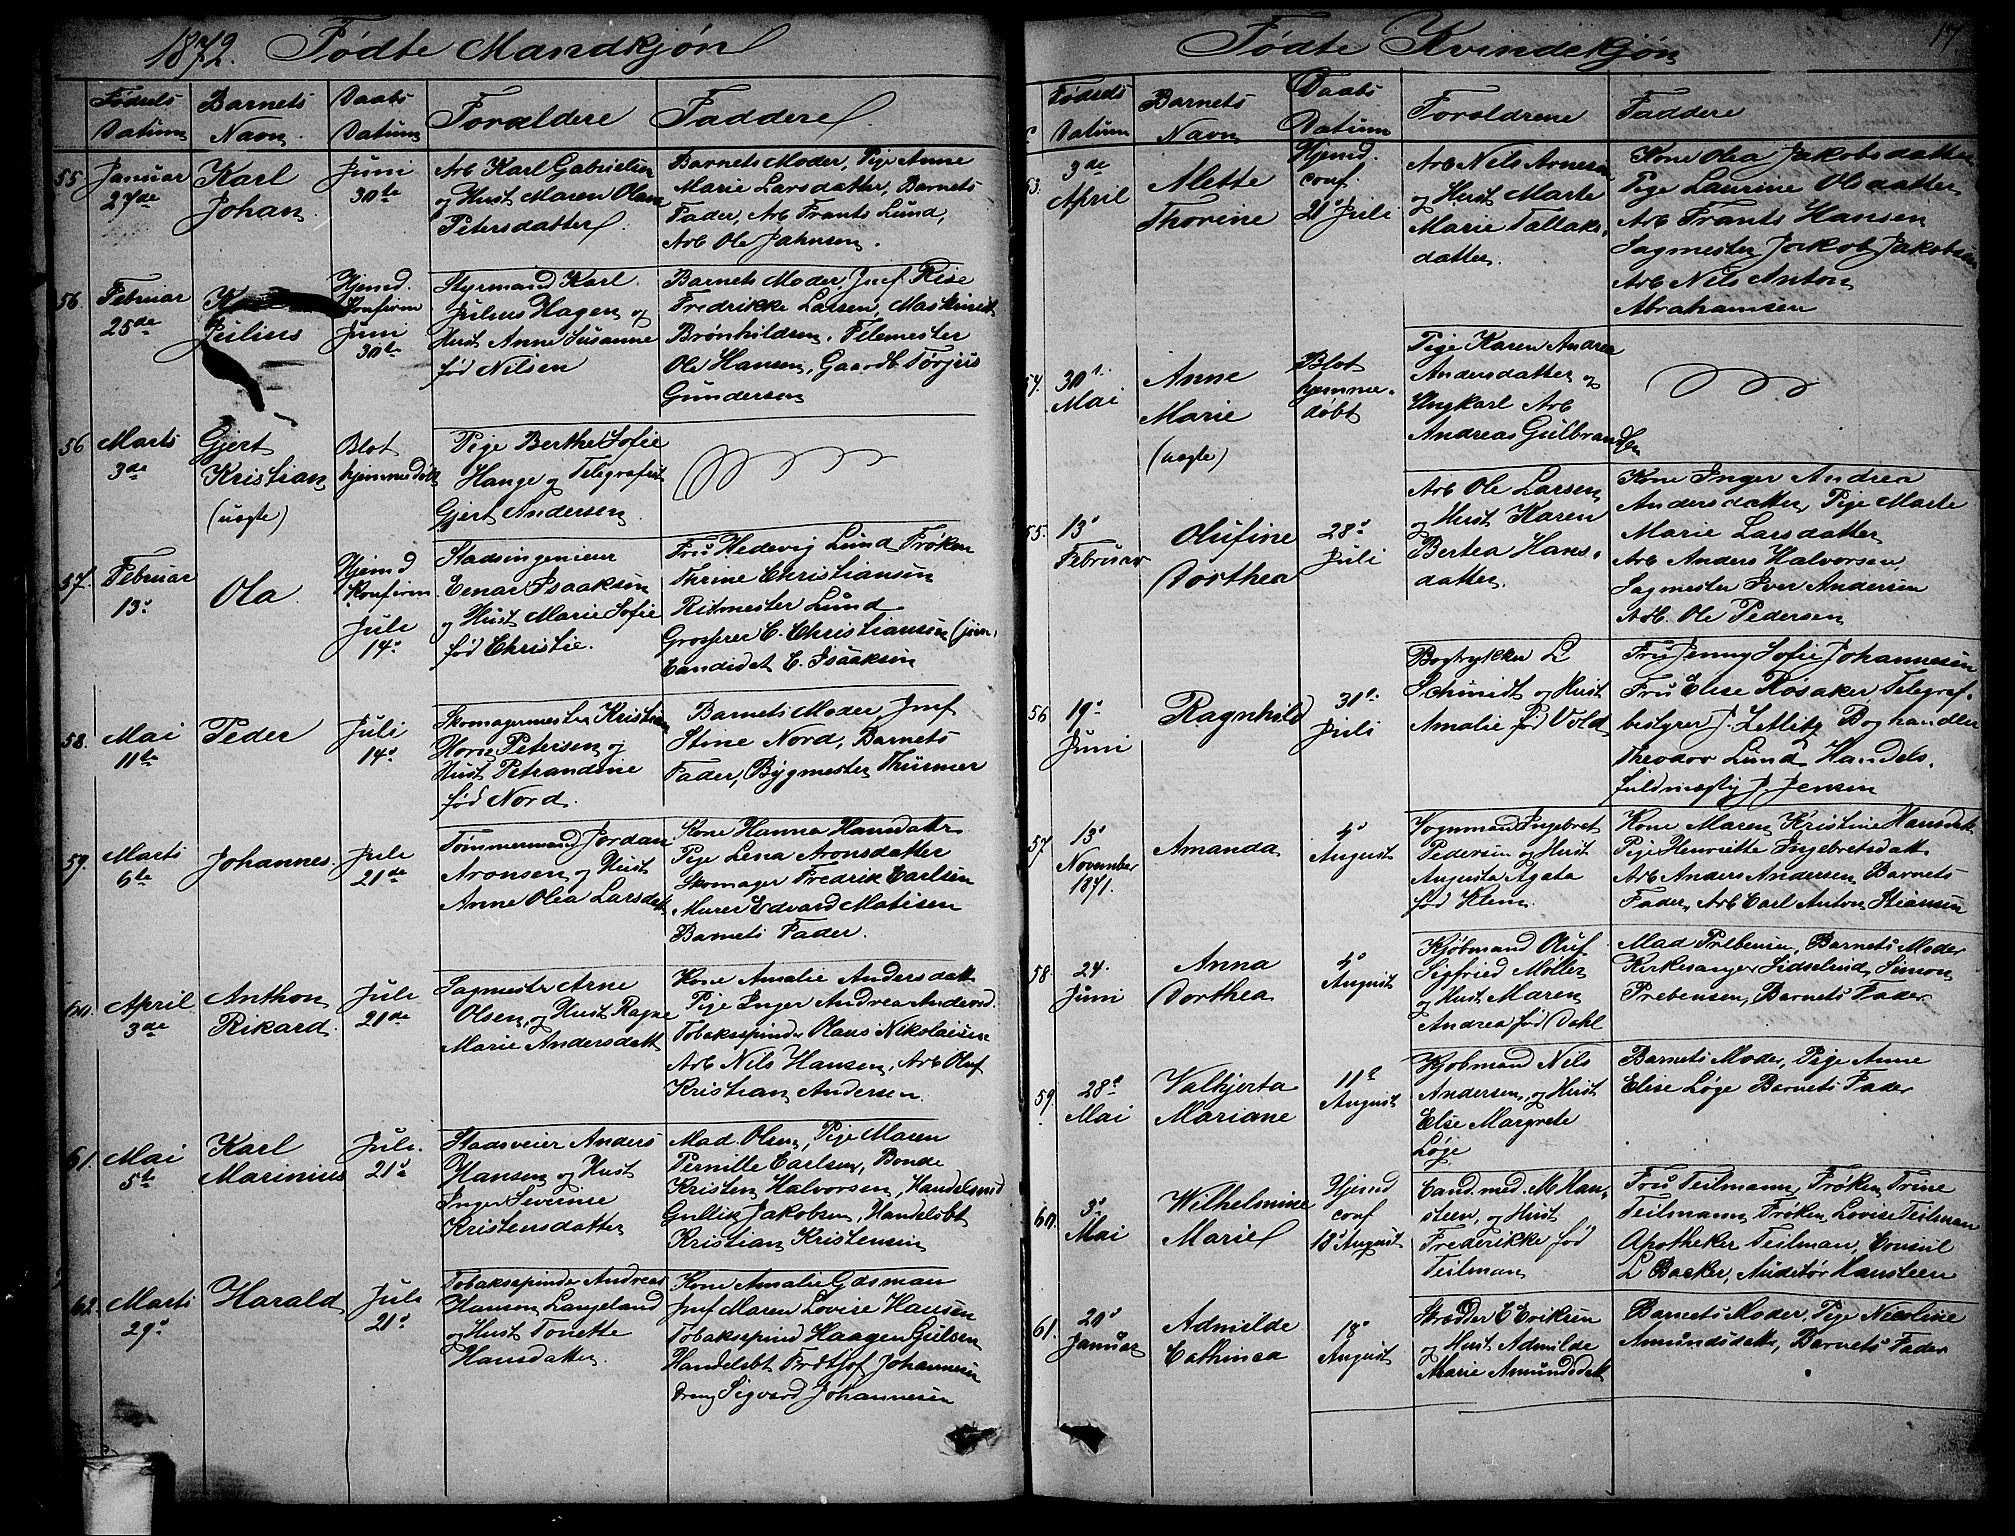 1872. Fødte Mandkjøn
Fødsels Datum
Barnets Navn
Daabs Datum
Forældere
Faddere
55
Januar
27de
Karl
Johan
Juni
30te
Arb Karl Gabrielsen
og Hust Maren Olava
Petersdatter
Barnets Moder, Pige Anne
Marie Larsdatter, Barnets
Fader, Arb Frants Lund,
Arb Ole Jahnsen.
56.
Februar
25de
K
Julius
Hjemd.
Konfirm
Juni
30te
Styrmand Karl
Julius Hagen og
Hust Anne Susanne
fød Nilsen
Barnets Moder, Jmf Rise
Fredrikke Larsen, Maskinist
Brønhildsen, Filemester
Ole Hansen, Gaardb. Tørjus
Gundersen
56
Marts
3de
Gjert
Kristian
(uægte)
Blot
hjemmedøbt
Pige Berthe Sofie
Hange og Telegrafist
Gjert Andersen
57.
Februar
13de
Ola
Hjemd
Konfirm
Juli
14de
Stadsingenieur
Eenar Isaaksen
og Hust Marie Sofie
fød Christie.
Fru Hedevig Lund Frøken
Thrine Christiansen
Ritmester Lund
Grosserer C. Christiansen (jun.
Candidet C. Isaaksen
58.
Mai
11te
Peder
Juli
14de
Skomagermester Kristian
Horne Petersen og
Hust Petrandine
fød Nord.
Barnets Moder, Jmf
Stine Nord, Barnets
Fader, Bygmester Thurmer
59.
Marts
6te
Johannes.
Juli
21de
Tømmermand Jordan
Aronsen og Hust
Anne Olea Larsdatt
Kone Hanna Hansdatter
Pige Lena Aronsdatter
Skomager Fredrik Carlsen
Murer Edvard Matisen
Barnets Fader.
60.
April
3de
Anthon
Rikard.
Juli
21de
Sagmester Arne
Olsen, og Hust Ragne
Marie Andersdatt
Kone Amalie Andersdatt
Pige Inger Andrea Andersd.
Tobaksspinder Olaus Nikolaisen
Arb Nils Hansen, Arb Oluf
Kristian Andersen.
61.
Mai
5te
Karl
Marinius
Juli.
21de
Stadsveier Anders
Hansen og Hust
Inger Severine
Kristensdatter
Mad. Olsen, Pige Maren
Pernille Carlsen, Bonde
Kristen Halvorsen, Handelsmd
Gullik Jakobsen, Handelsbt
Kristian Kristensen
62.
Marts
29de
Harald
Juli
21de
Tobaksspinder Andreas
Hanson Langeland
og Hust Tonette
Hansdatter
Kone Amalie Gasman
Jmf Maren Lovise Hansen
Tobaksspind Haagen Gulsen
Handelsbt Fridtjof Johannesen
Dreng Sigvard Johannesen
Fødte Kvindekjøn
17
Fødseds Datum
Barnets Navn
Daabs Datum
Foreldrene
Faddere
53.
3de
April
Alette
Thorine
Hjemd.
conf.
21de Juli
Arb Nils Arnesen
og Hust Marte
Marie Tallaks-
datter.
Kone Olea Jakobsdatter
Pige Laurine Olsdatter
Arb Frants Hansen
Sagmester Jakob Jakobsen
Arb Nils Anton
Abrahamsen
54.
30te
Mai
Anne
Marie
(uægte)
Blot
hjemme-
døbt
Pige Karen Andrea
Andersdatter og
Ungkarl Arb
Andreas Gulbrandsen
55.
13de
Februar
Olufine
Dorthea
28de
Juli
Arb Ole Larsen
og Hust Karen
Bertea Hans-
datter.
Kone Inger Andrea
Andersdatter, Pige Marte
Marie Larsdatter
Arb Anders Halvorsen
Sagmester Iver Andersen
Arb. Ole Pedersen
56
19de
Juni
Ragnhild
31te
Juli
Bogtrykker L
Schmidt og Hust
Amalie fd Vold
Fru Jenny Sofie Johannesen
Fru Elise Rosaker Telegraf-
bestyrer J. Zetlitz Boghandler
Theodor Lund Handels-
fuldmægtig J. Jensen
57
13de
November
1871.
Amanda
4de
August
Vognmand Ingebret
Pedersen og Hust
Augusta Agata
fød Klem.
Kone Maren Kristine Hansdt.
Pige Henriette Ingebretsdatt
Arb Anders Andersen Barnets
Fader, Arb Carl Anton Stiansen
58.
24.
Juni
Anna
Dorthea
4de
August
Kjøbmand Oluf
Sigfried Møller
og Hust Maren
Andrea fød Dahl
Mad Prebensen, Barnets Moder
Kirkesanger Lidselund Simon
Prebensen, Barnets Fader
59.
28de
Mai
Valhjerta
Mariane
11te
August
Kjøbmand Nils
Andersen, og Hust
Else Margrete
Løge
Barnets Moder, Pige Anne
Elise Løge Barnets Fader
60.
5te
Mai
Wilhelmine
Marie
Hjemd
conf
18 August
Cand. med. M Han-
steen, og Hust
Frederikke fød
Teilman
Fru Teilmann, Frøken Trine
Teilmann Frøken Lovise Teilman
Apotheker Teilman, Consul
L Backer, Auditør Hansteen
61.
20de
Januar
Admilde
Cathinca
18de
August
Skrædder E Eriksen
og Hust Admilde
Marie Amundsdatt
Barnets Moder, Pige Nicoline
Amundsdatt, Barnets Fader